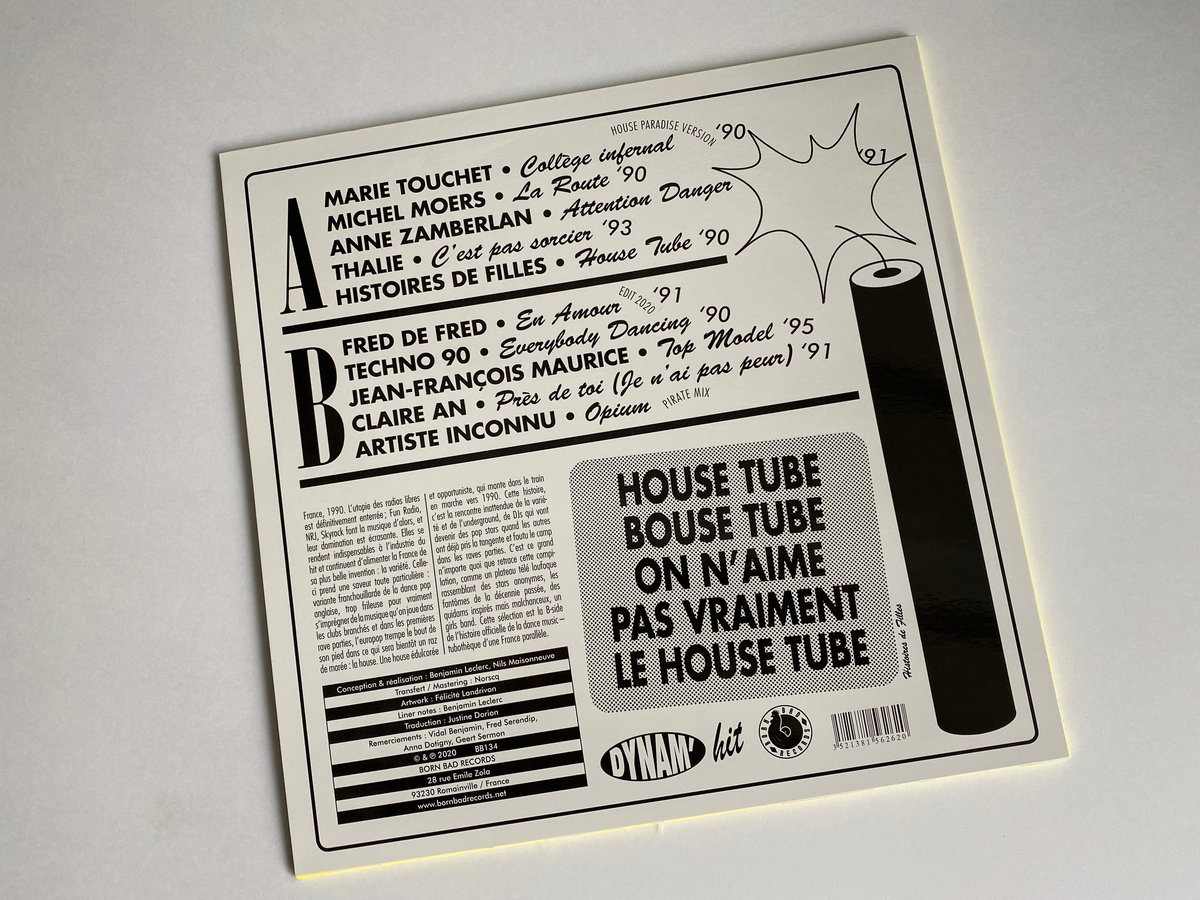 A
MARIE TOUCHET • Collège infernal HOUSE PARADISE VERSION '90
MICHEL MOERS • La Route '90
ANNE ZAMBERLAN • Attention Danger '91
THALIE • C'est pas sorcier '93
HISTOIRES DE FILLES • House Tube '90
B
FRED DE FRED • En Amour EDIT 2020 '91
TECHNO 90 • Everybody Dancing '90
JEAN-FRANÇOIS MAURICE • Top Model '95
CLAIRE AN • Près de toi (Je n'ai pas peur) '91
ARTISTE INCONNU • Opium PIRATE MIX
France, 1990. L'utopie des radios libres
est définitivement enterrée ; Fun Radio,
NRJ, Skyrock font la musique d'alors, et
leur domination est écrasante. Elles se
rendent indispensables à l'industrie du
hit et continuent d'alimenter la France de
sa plus belle invention : la variété. Celle-
ci prend une saveur toute particulière :
variante franchouillarde de la dance pop
anglaise, trop frileuse pour vraiment
s'imprégner de la musique qu'on joue dans
les clubs branchés et dans les premières
rave parties, l'europop trempe le bout de
son pied dans ce qui sera bientôt un raz
de marée : la house. Une house édulcorée
et opportuniste, qui monte dans le train
en marche vers 1990. Cette histoire,
c'est la rencontre inattendue de la varié-
té et de l'underground, de DJs qui vont
devenir des pop stars quand les autres
ont déjà pris la tangente et foutu le camp
dans les raves parties. C'est ce grand
n'importe quoi que retrace cette compi-
lation, comme un plateau télé loufoque
rassemblant des stars anonymes, les
fantômes de la décennie passée, des
quidams inspirés mais malchanceux, un
girls band. Cette sélection est la B-side
de l'histoire officielle de la dance music –
tubothèque d'une France parallèle.
HOUSE TUBE
BOUSE TUBE
ON N'AIME
PAS VRAIMENT
LE HOUSE TUBE
Histoires de Filles
Conception & réalisation : Benjamin Leclerc, Nils Maisonneuve
Transfert / Mastering : Norscq
Artwork : Félicité Landrivon
Liner notes : Benjamin Leclerc
Traduction : Justine Dorion
Remerciements : Vidal Benjamin, Fred Serendip,
Anna Dotigny, Geert Sermon
© & ℗ 2020 BB134
BORN BAD RECORDS
28 rue Emile Zola
93230 Romainville / France
www.bornbadrecords.net
DYNAM' hit
BORN BAD RECORDS
3 521381 562620